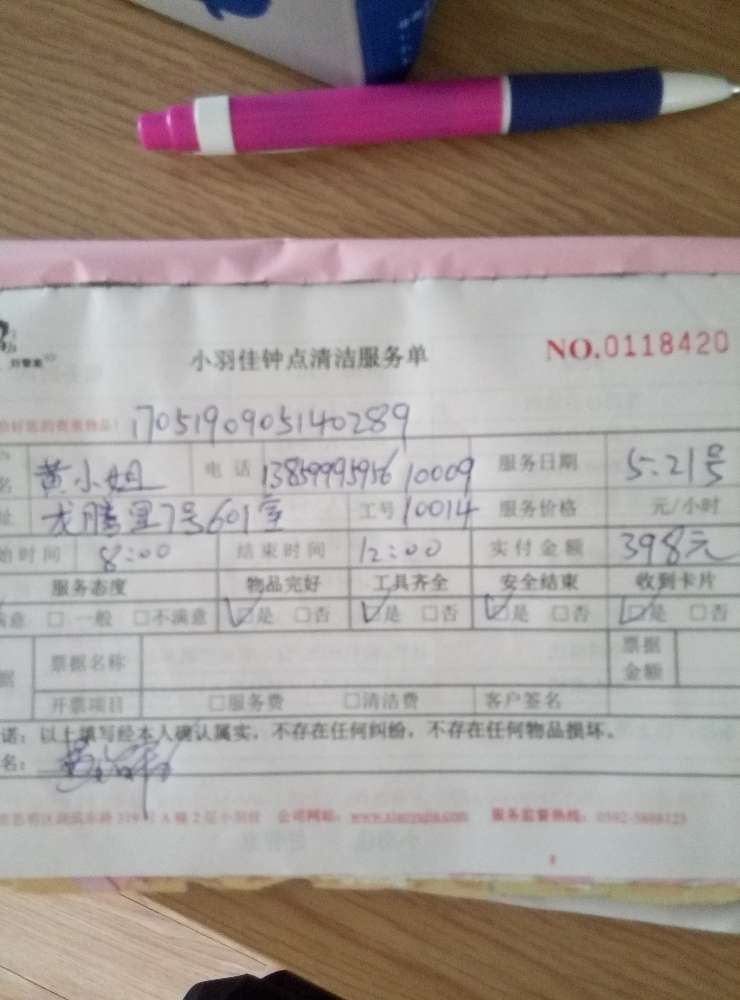 小羽佳钟点清洁服务单 NO.0118420
1705190905140289
名 黄小姐 电话 13859995956/10009 服务日期 5.21号
址 龙腾里7号601室 工号 10014 服务价格 元/小时
始时间 8:00 结束时间 12:00 实付金额 398元
服务态度 物品完好 工具齐全 安全结束 收到卡片
满意 □一般 □不满意 ☑是 □否 ☑是 □否 ☑是 □否 ☑是 □否
据 票据名称 票据金额
开票项目 □服务费 □清洁费 客户签名
诺：以上填写经本人确认属实，不存在任何纠纷，不存在任何物品损坏。
名：
公司网站： 服务监督热线：